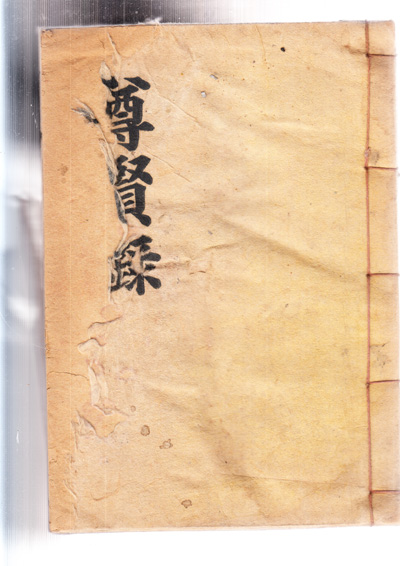 尊賢錄